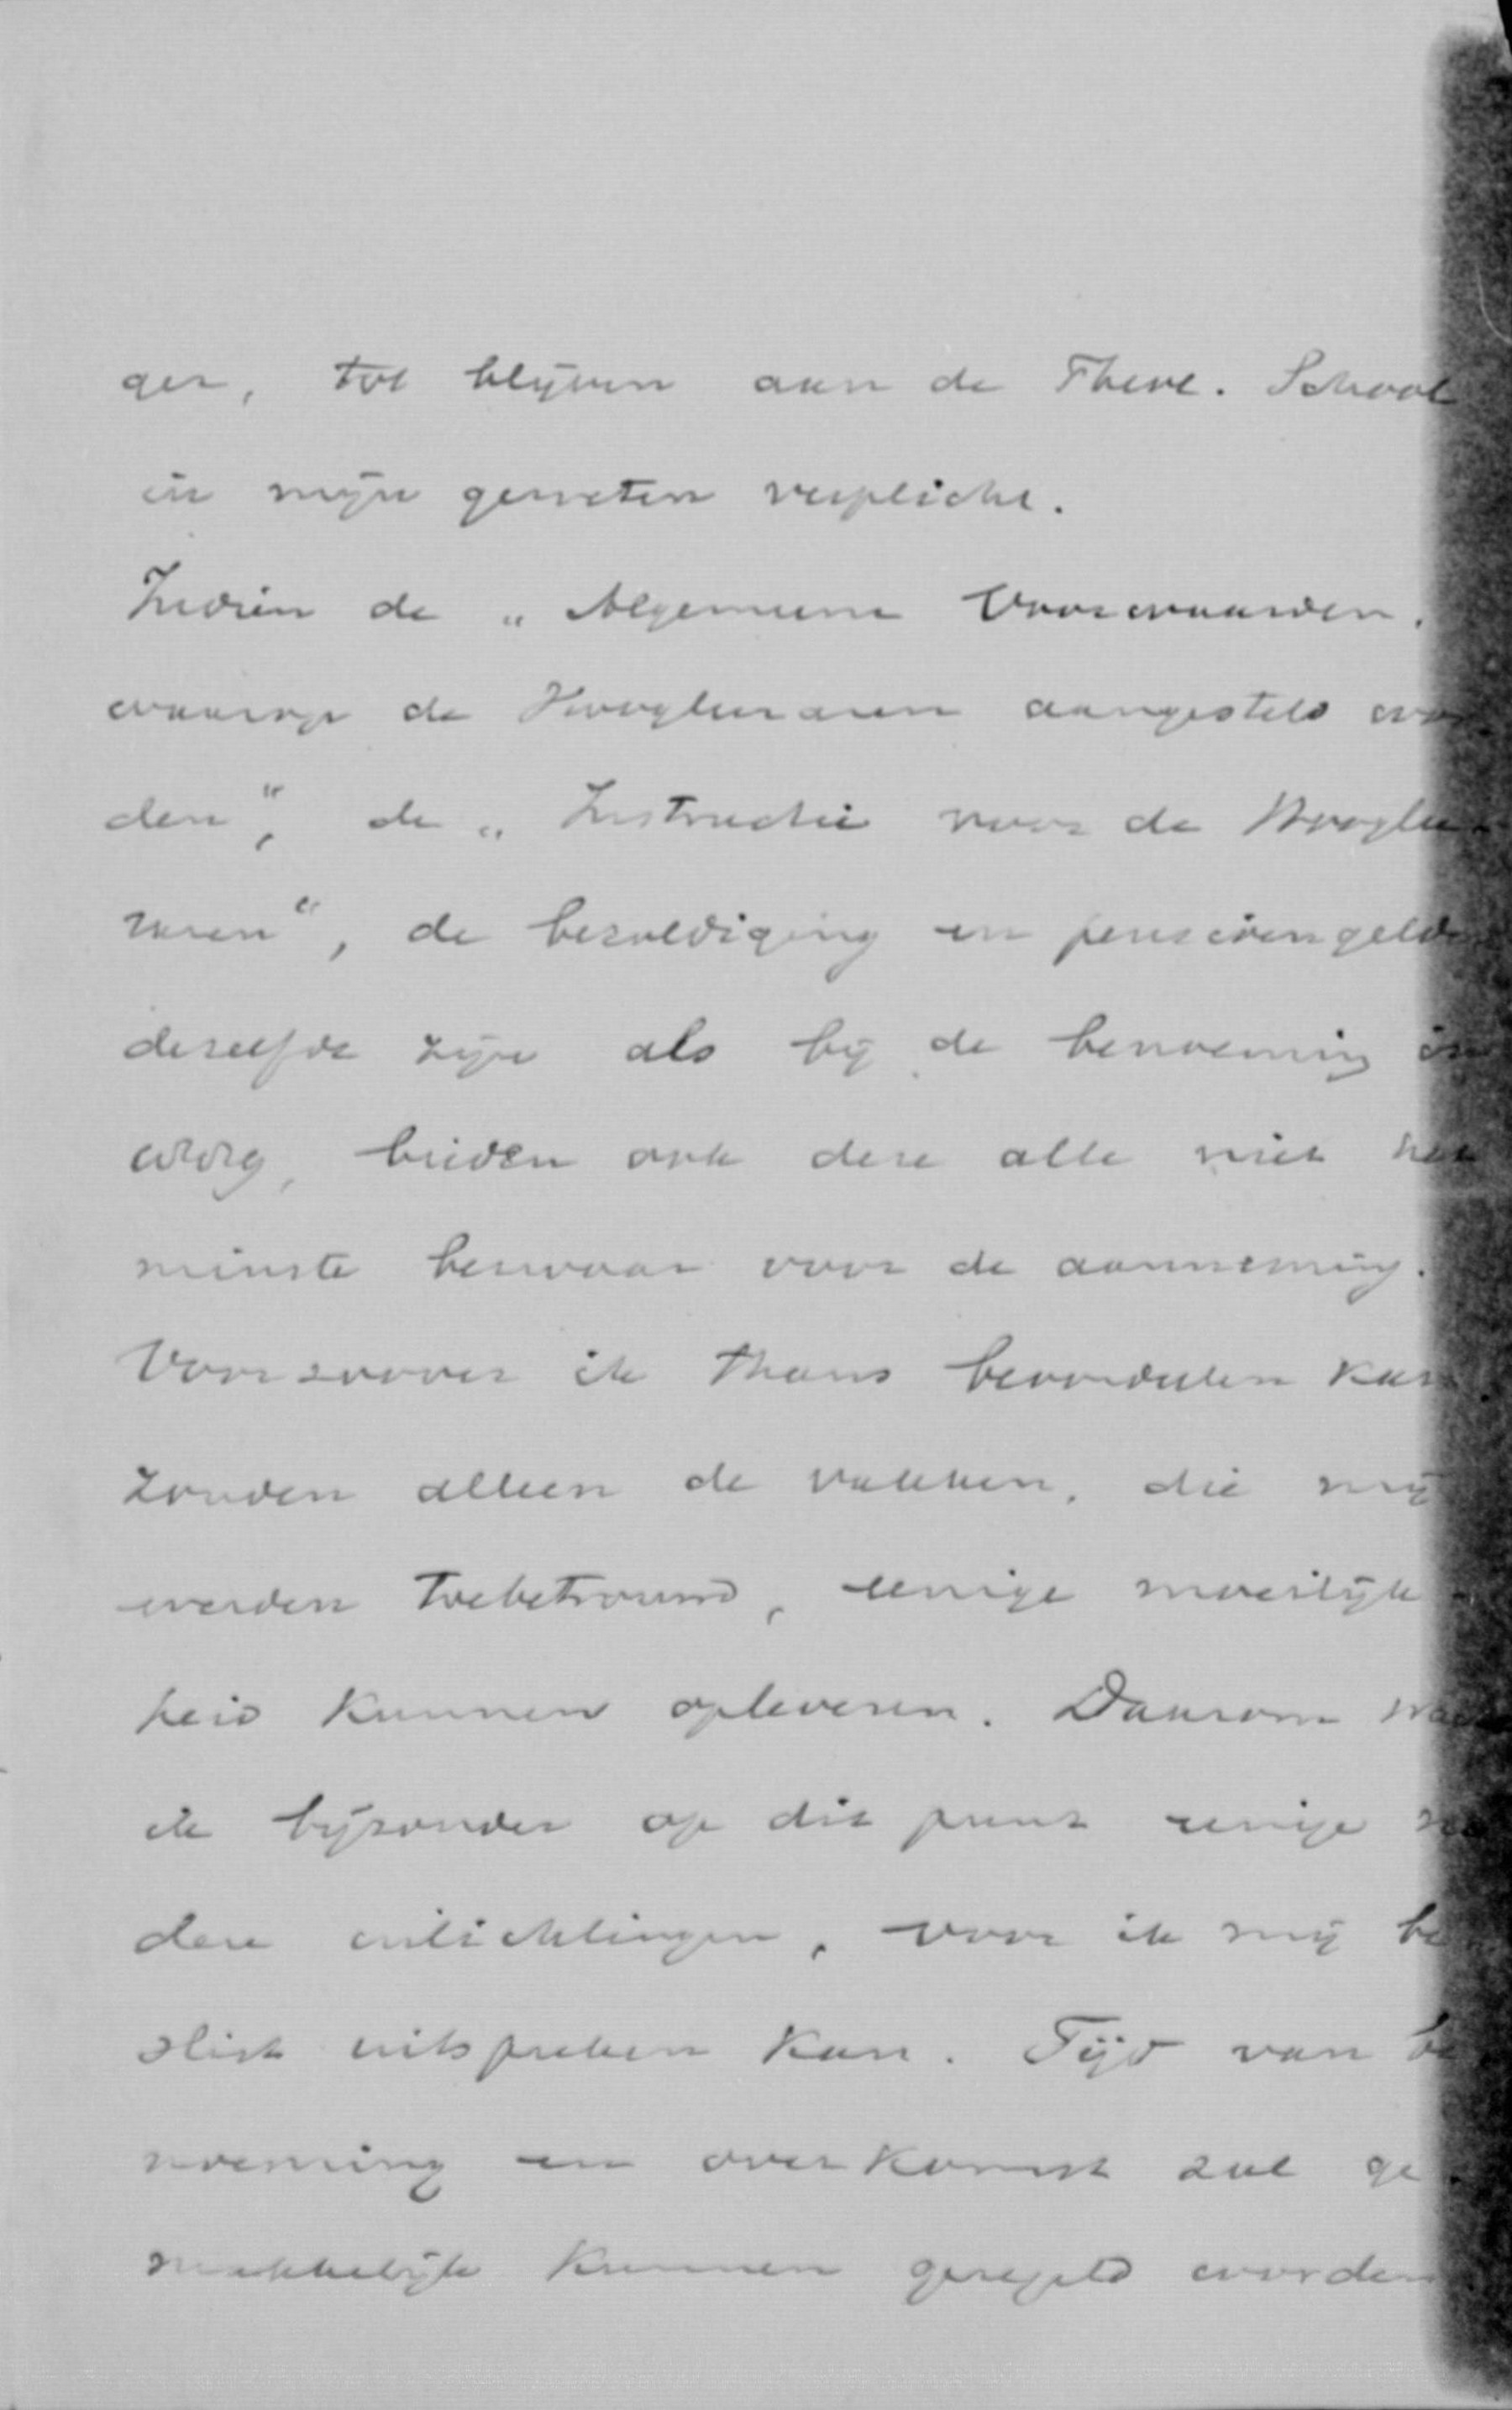 ger, tot blijven aan de Theol. School
in mijn geweten verplicht.
Indien de „Algemeene Voorwaarden,
waarop de Hoogleeraren aangesteld wor
den", de „Instructie voor de Hooglee-
raren", de bezoldiging en pensioengelden
dezelfde zijn als bij de benoeming in
bieden ook deze alle niet het
minste bezwaar voor de aanneming.
Voorzoover ik thans beoordeelen kan,
zouden alleen de vakken, die mij
werden toebetrouwd, eenige moeilijk-
heid kunnen opleveren. Daarom
ik bijzonder op dit punt eenige na
dere inlichtingen, voor ik mij be
slist uitspreken kan. Tijd van be
noeming en overkomst zal ge-
makkelijk kunnen geregeld worden